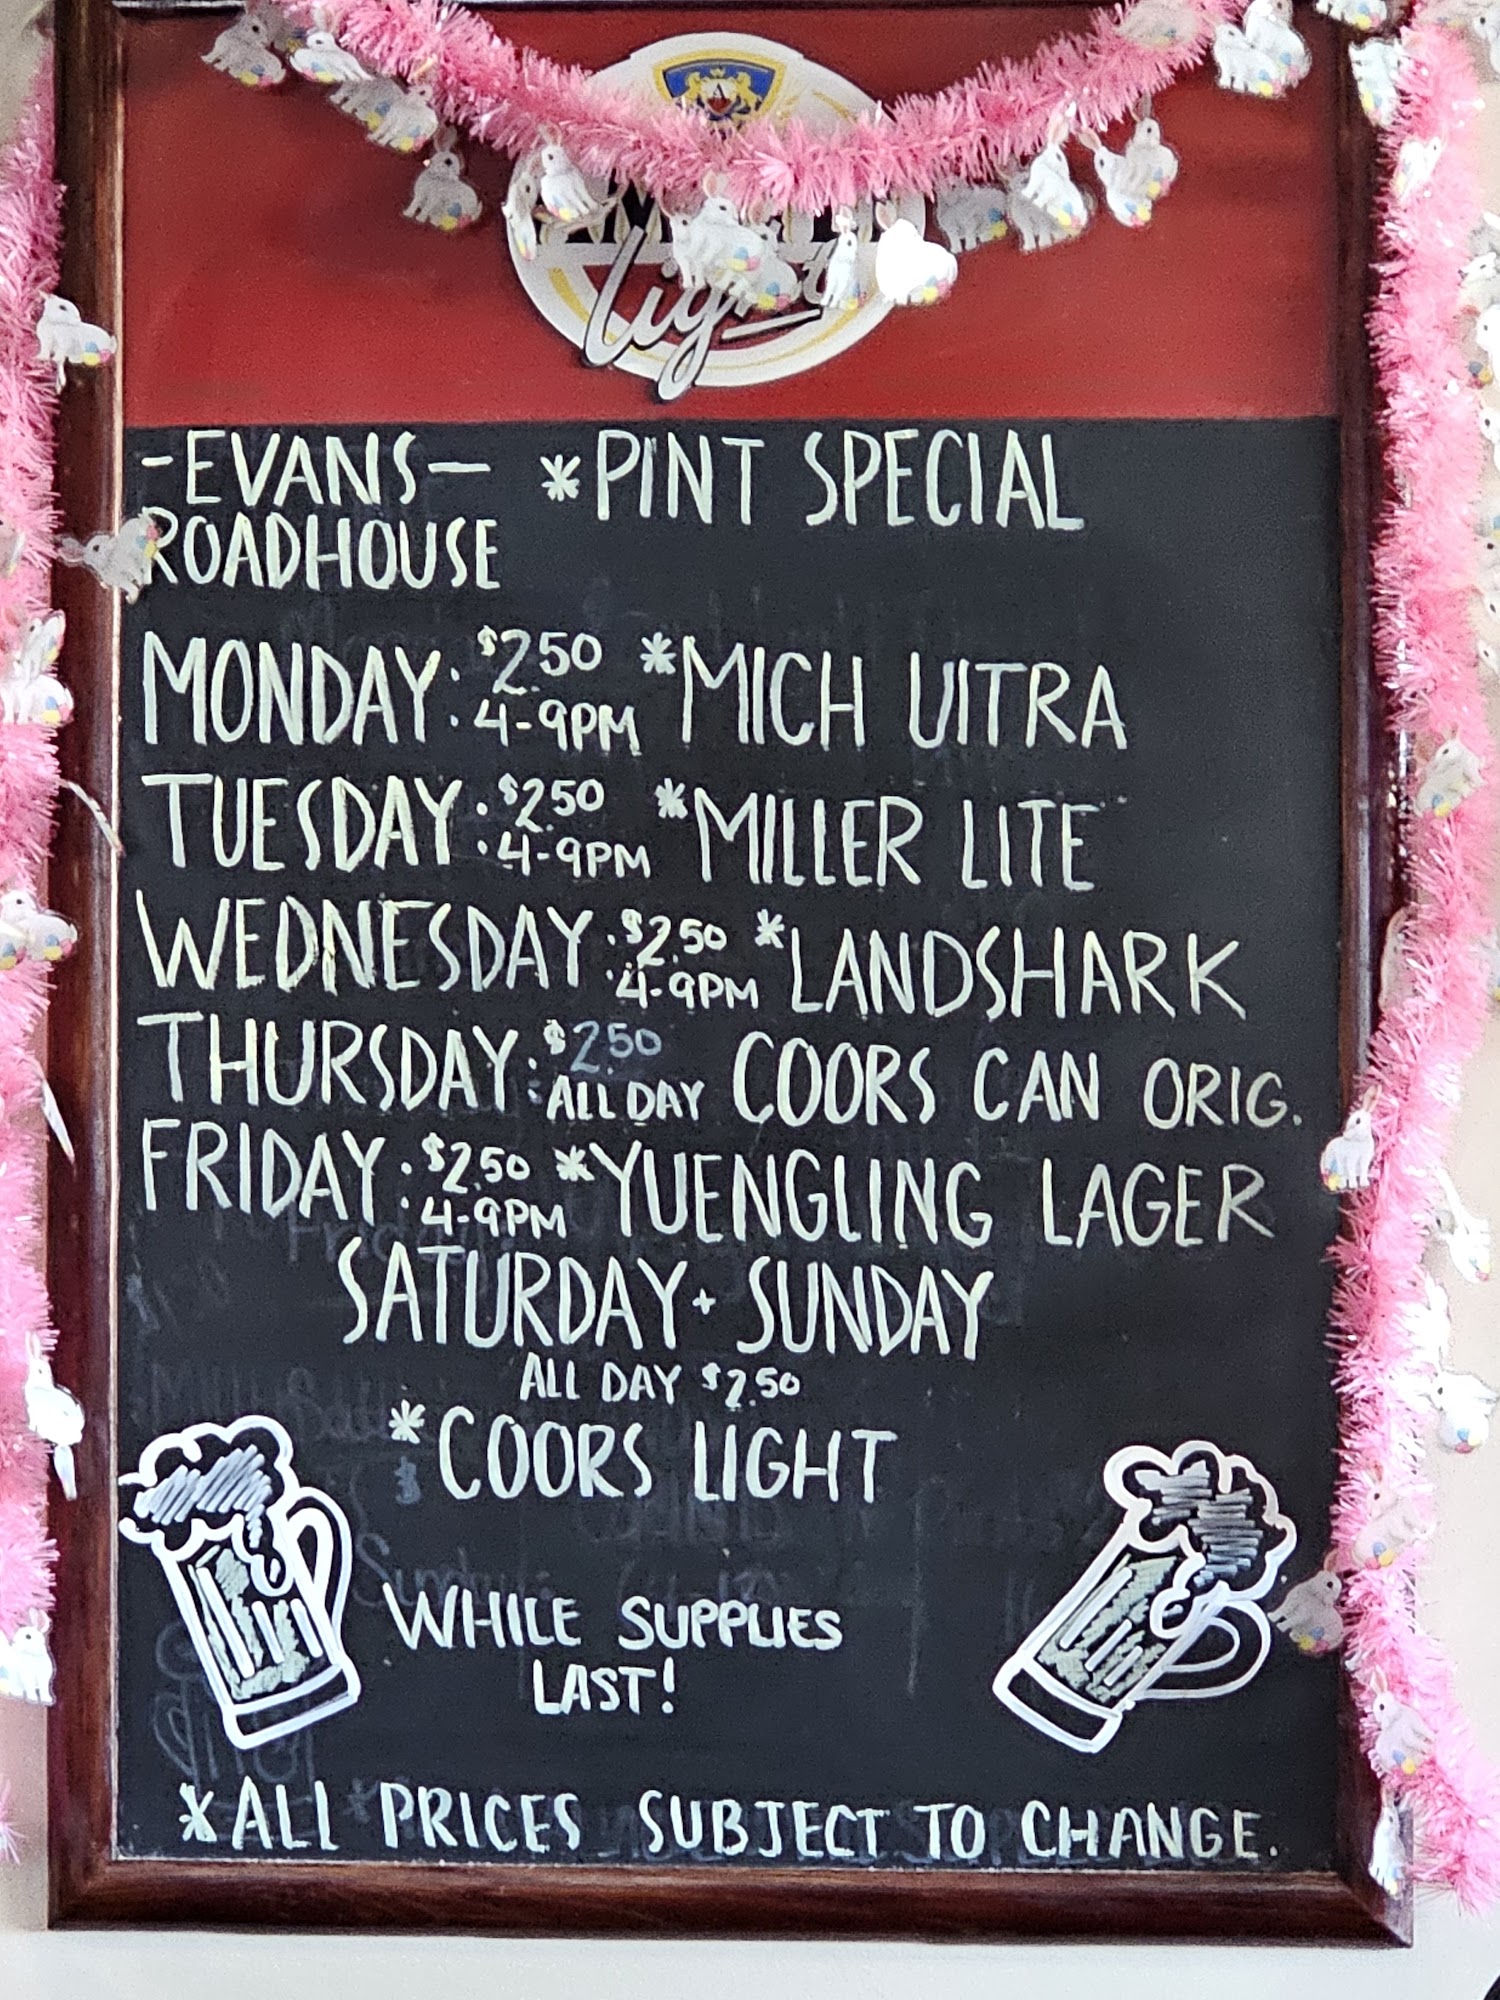 Light
-EVANS- *PINT SPECIAL
ROADHOUSE
MONDAY: $2.50 *MICH UITRA
4-9PM
TUESDAY: $2.50 *MILLER LITE
4-9PM
WEDNESDAY: $2.50 *LANDSHARK
4-9PM
THURSDAY: $2.50 COORS CAN ORIG.
ALL DAY
FRIDAY: $2.50 *YUENGLING LAGER
4-9PM
SATURDAY + SUNDAY
ALL DAY $2.50
*COORS LIGHT
WHILE SUPPLIES
LAST!
*ALL PRICES SUBJECT TO CHANGE.